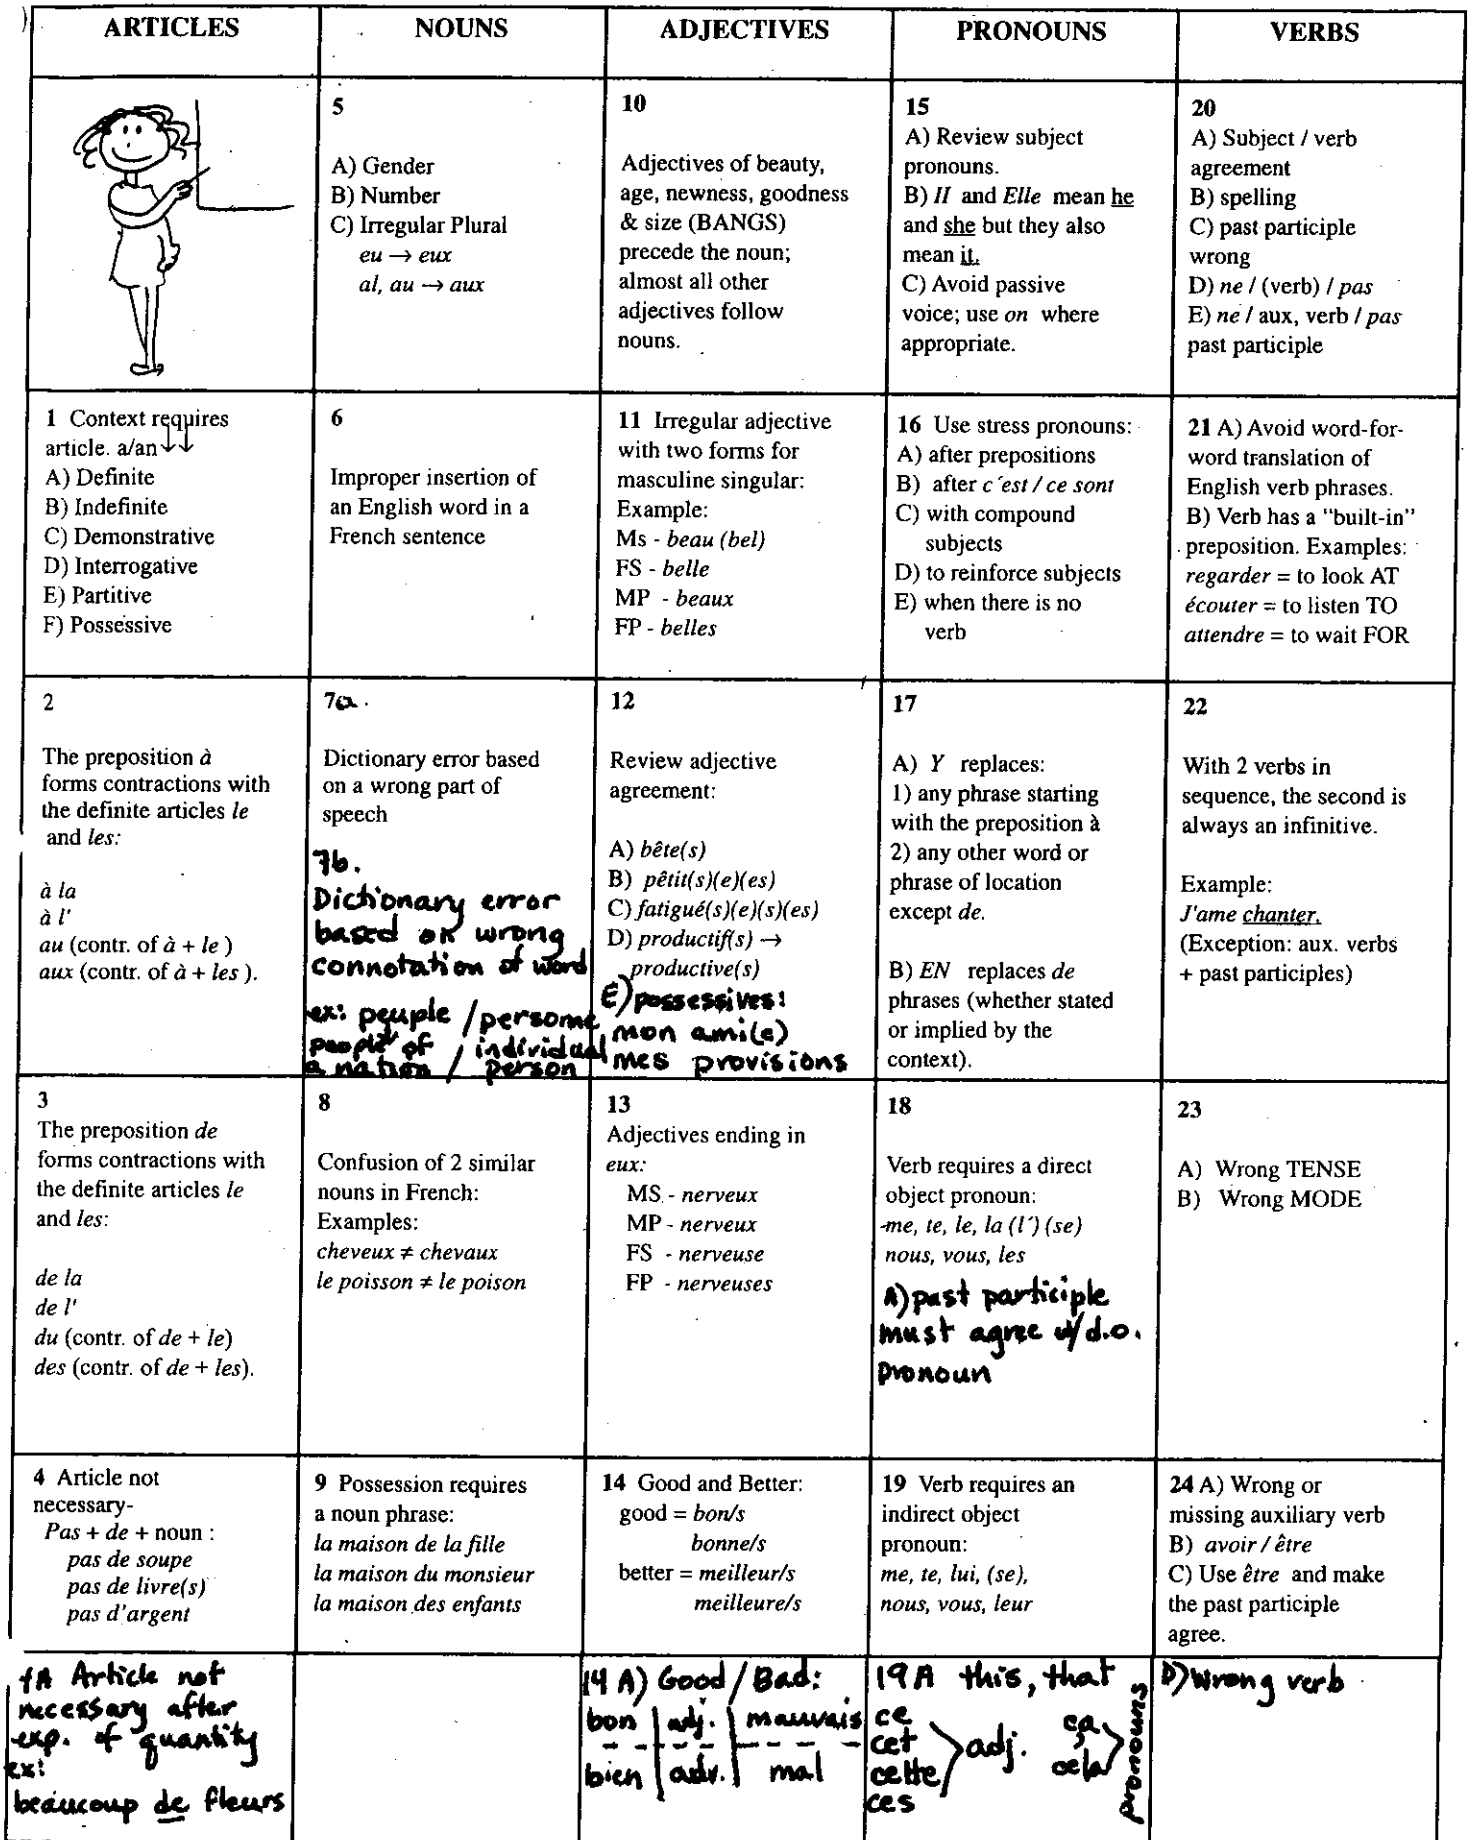 ARTICLES
NOUNS
ADJECTIVES
PRONOUNS
VERBS
5
A) Gender
B) Number
C) Irregular Plural
eu → eux
al, au → aux
10
Adjectives of beauty,
age, newness, goodness
& size (BANGS)
precede the noun;
almost all other
adjectives follow
nouns.
15
A) Review subject
pronouns.
B) Il and Elle mean he
and she but they also
mean it.
C) Avoid passive
voice; use on where
appropriate.
20
A) Subject / verb
agreement
B) spelling
C) past participle
wrong
D) ne / (verb) / pas
E) ne / aux, verb / pas
past participle
1 Context requires
article. a/an ↓↓
A) Definite
B) Indefinite
C) Demonstrative
D) Interrogative
E) Partitive
F) Possessive
6
Improper insertion of
an English word in a
French sentence
11 Irregular adjective
with two forms for
masculine singular:
Example:
Ms - beau (bel)
FS - belle
MP - beaux
FP - belles
16 Use stress pronouns:
A) after prepositions
B) after c´est / ce sont
C) with compound
subjects
D) to reinforce subjects
E) when there is no
verb
21 A) Avoid word-for-
word translation of
English verb phrases.
B) Verb has a "built-in"
preposition. Examples:
regarder = to look AT
écouter = to listen TO
attendre = to wait FOR
2
The preposition à
forms contractions with
the definite articles le
and les:
à la
à l'
au (contr. of à + le )
aux (contr. of à + les ).
7a.
Dictionary error based
on a wrong part of
speech
7b.
Dictionary error
based on wrong
connotation of word
ex: peuple / personne
people of / individual
a nation / person
12
Review adjective
agreement:
A) bête(s)
B) pêtit(s)(e)(es)
C) fatigué(s)(e)(s)(es)
D) productif(s) →
productive(s)
E) possessives:
mon ami(e)
mes provisions
17
A) Y replaces:
1) any phrase starting
with the preposition à
2) any other word or
phrase of location
except de.
B) EN replaces de
phrases (whether stated
or implied by the
context).
22
With 2 verbs in
sequence, the second is
always an infinitive.
Example:
J'ame chanter.
(Exception: aux. verbs
+ past participles)
3
The preposition de
forms contractions with
the definite articles le
and les:
de la
de l'
du (contr. of de + le)
des (contr. of de + les).
8
Confusion of 2 similar
nouns in French:
Examples:
cheveux ≠ chevaux
le poisson ≠ le poison
13
Adjectives ending in
eux:
MS - nerveux
MP - nerveux
FS - nerveuse
FP - nerveuses
18
Verb requires a direct
object pronoun:
me, te, le, la (l´) (se)
nous, vous, les
A) past participle
must agree w/ d.o.
pronoun
23
A) Wrong TENSE
B) Wrong MODE
4 Article not
necessary-
Pas + de + noun :
pas de soupe
pas de livre(s)
pas d'argent
9 Possession requires
a noun phrase:
la maison de la fille
la maison du monsieur
la maison des enfants
14 Good and Better:
good = bon/s
bonne/s
better = meilleur/s
meilleure/s
19 Verb requires an
indirect object
pronoun:
me, te, lui, (se),
nous, vous, leur
24 A) Wrong or
missing auxiliary verb
B) avoir / être
C) Use être and make
the past participle
agree.
4A Article not
necessary after
exp. of quantity
ex:
beaucoup de fleurs
14 A) Good / Bad:
bon | adj. | mauvais
bien | adv. | mal
19A this, that
ce
cet
cette
ces
adj.
ça
cela
pronouns
D) Wrong verb